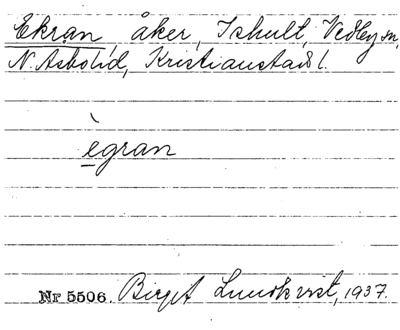 Ekran, åker, Ishult, Vedby sn,
N. Åsbo hd, Kristianstads l.
ègran
Nr 5506. Birgit Lundkvist, 1937.